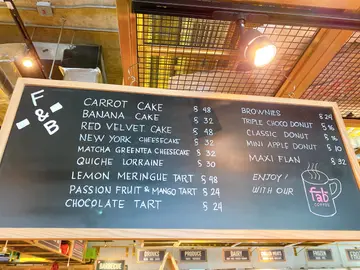 F & B
CARROT CAKE $ 48
BANANA CAKE $ 32
RED VELVET CAKE $ 48
NEW YORK CHEESECAKE $ 32
MATCHA GREENTEA CHEESECAKE $ 32
QUICHE LORRAINE $ 30
LEMON MERINGUE TART $ 48
PASSION FRUIT & MANGO TART $ 24
CHOCOLATE TART $ 24
BROWNIES $ 24
TRIPLE CHOCO DONUT $ 16
CLASSIC DONUT $ 16
MINI APPLE DONUT $ 10
MAXI FLAN $ 32
ENJOY!
WITH OUR
fab
COFFEE
BARBECUE
PRODUCE
PRODUCE
DAIRY
FROZEN